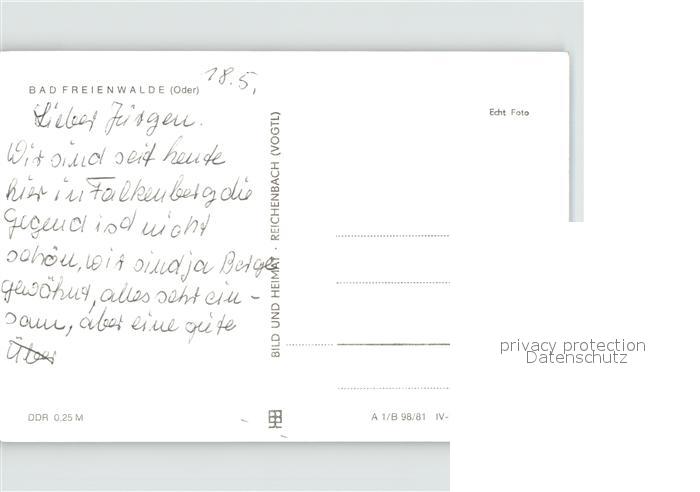 18.5.
BAD FREIENWALDE (Oder)
Echt Foto
Lieber Jürgen.
Wir sind seit heute
hier in Falkenberg die
Gegend isd nicht
schön, wir sind ja Berge
gewöhnt, alles sehr ein-
sam, aber eine gute
Über
BILD UND HEIMAT · REICHENBACH (VOGTL)
privacy protection
Datenschutz
DDR 0,25 M
A 1/B 98/81 IV-